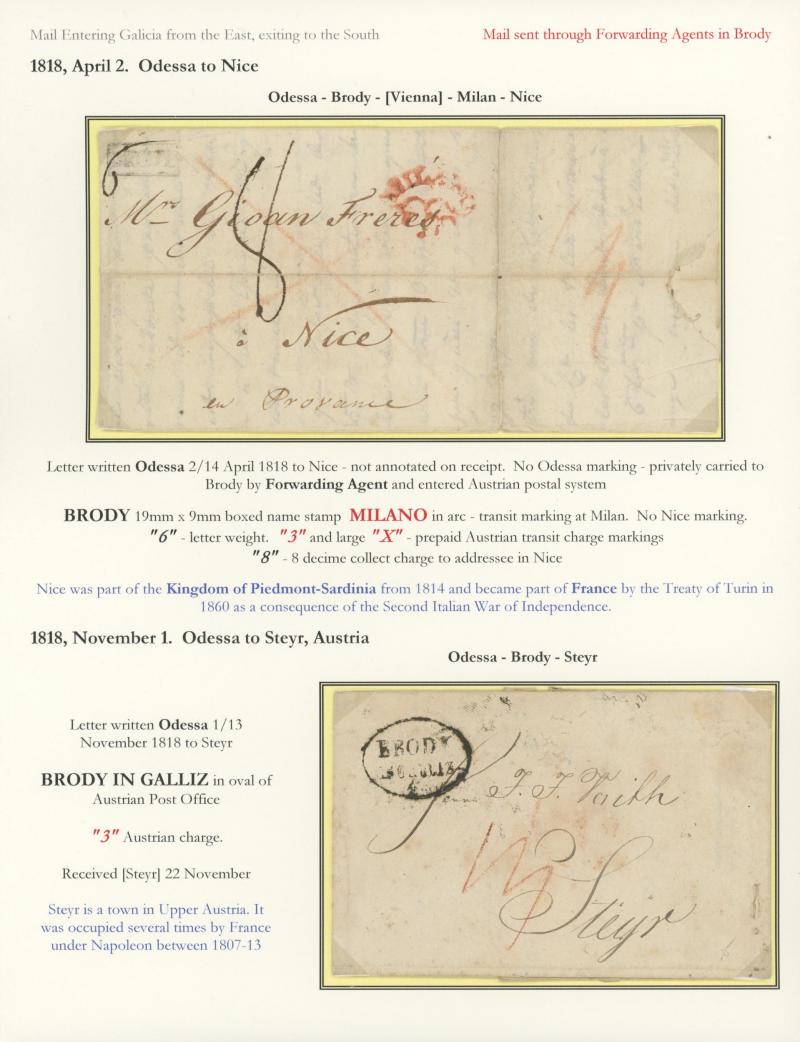 Mail Entering Galicia from the East, exiting to the South
Mail sent through Forwarding Agents in Brody
1818, April 2. Odessa to Nice
Odessa - Brody - [Vienna] - Milan - Nice
6
8
Mrs Gioan Freres
à Nice
en Provance
Letter written Odessa 2/14 April 1818 to Nice - not annotated on receipt. No Odessa marking - privately carried to
Brody by Forwarding Agent and entered Austrian postal system
BRODY 19mm x 9mm boxed name stamp MILANO in arc - transit marking at Milan. No Nice marking.
"6" - letter weight. "3" and large "X" - prepaid Austrian transit charge markings
"8" - 8 decime collect charge to addressee in Nice
Nice was part of the Kingdom of Piedmont-Sardinia from 1814 and became part of France by the Treaty of Turin in
1860 as a consequence of the Second Italian War of Independence.
1818, November 1. Odessa to Steyr, Austria
Odessa - Brody - Steyr
Letter written Odessa 1/13
November 1818 to Steyr
BRODY IN GALLIZ in oval of
Austrian Post Office
"3" Austrian charge.
Received [Steyr] 22 November
Steyr is a town in Upper Austria. It
was occupied several times by France
under Napoleon between 1807-13
BRODY
J. J. Voith
Steyr